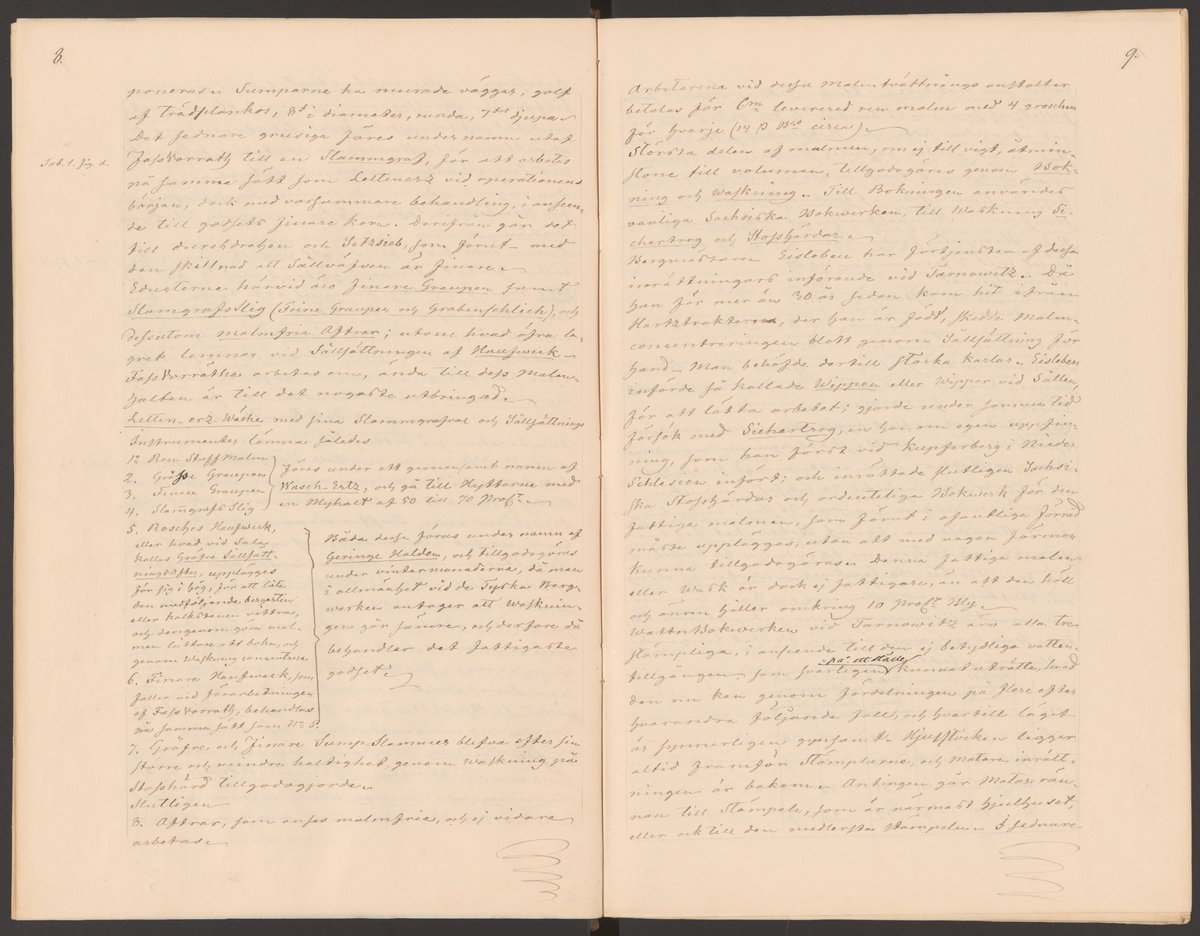 8.
poneras. Sumparne ha murade väggar, golf
af trädplankor, 8 f i diameter, runda, 7 djupa.
Det sednare grusiga föres under namn utaf
Tab. 1. fig. d.
Fass Vorrath till en Slammgraf, för att arbetas
på samma sätt som Lettenerz vid operationens
början, dock med varsammare behandling, i anseen-
de till godsets finare korn. Derifrån går det
till durchdrehen och Setzsieb, som förut – med
den skillnad att Sällväfven är finare.
Educterne härvid äro finare Graupen samt
SlamgrafsSlig (Feine Graupen och Grabenschlich), och
dessutom malmfria Aftrar; utom hvad öfra la-
gret lemnar vid Sällsättningen af Haufwerk.
Fass Vorräthe arbetas om, ända till dess Malm-
halten är till det nogaste utbringad.
Letten-erz-Wäshe med sina Slammgrafvar och Sällsättnings
Instrumenter lämna således
1o Ren Stuff Malm
2. Gröfre Graupen
3. Finare Graupen
4. Slamgrafs Slig
föres under ett gemensamt namn af
Wasch-Ertz, och gå till Hyttorne med
en Blyhalt af 50 till 70 Proct.
5. Rosches Haufwerk,
eller hvad vid Sala
kallas Gröfre Sällsätt-
ningsAfter, upplägges
för sig i hög, för att låta
den medföljande bergarten
eller kalkstenen vittra,
och derigenom göra mal-
men lättare att boka, och
genom Waskning concentrera
6. Finare Haufwerk, som
faller vid förarbetningen
af Fass Vorrath, behandlas
på samma sätt som No 5.
Båda dessa föras under namn af
Geringe Halden, och tillgodogöras
under vintermånaderna, då man
i allmänhet vid de Tyska Berg-
werken antager att Wasknin-
gen går sämre, och derfore då
behandlar det fattigaste
godset.
7. Gröfre och finare Sump Slammer blefva efter sin
större och mindre haltighet, genom waskning på
Stosshärd tillgodogjorde.
Slutligen
8. Aftrar, som anses malmfria, och ej vidare
arbetas.
9.
Arbetarena vid dessa Malmtvättnings anstalter
betalas för Cnr levererad ren malm med 4 groschen
för hvarje (14 β Bco circa).
Största delen af malmen, om ej till vigt, åtmin-
stone till volumen, tillgodogöres genom Bok-
ning och Waskning. Till Bokningen användes
vanliga Sachsiska Bokwerken, till Waskning Si-
chertrog och Stosshärdar.
Bergmästaren Eisleben har förtjensten af dessa
inrättningars införande vid Tarnowitz. Då
han för mer än 30 år sedan kom hit ifrån
Hartztrakterna, der han är född, skedde Malm-
concentreringen blott genom Sällsättning för
hand. Man behöfde dertill starka karlar. Eisleben
införde så kallade Wippen eller Wippor vid Sällen,
för att lätta arbetet; gjorde under samma tid
försök med Sichertrog, en hans egen uppfin-
ning, som han först vid Kupferberg i Nieder
Schlesien infört; och inrättade slutligen Sachsi-
ska Stosshärdar och ordentliga Bokwerk för den
fattiga malmen, som förut i ofantlige förråd
måste uppläggas, utan att med någon förmon
kunna tillgodogöras. Denna fattige malm
eller Wask är dock ej fattigare, än att den höll
och ännu håller omkring 10 Proct Bly.
WattnBokwerken vid Tarnowitz äro alla tre
stämpliga, i anseende till den ej betydliga vatten-
tillgången, som svårligen på ett ställe kunnat uträtta, hvad
den nu kan genom fördelningen på flere efter
hvarandra följande fall, och hvartill läget
är synnerligen gynsamt. Hjulstocken ligger
altid framför Stämplarne, och Matare inrätt-
ningen är bakom. Antingen går Matarerän-
nan till Stämpeln, som är närmast hjulhuset,
eller ock till den medlersta stämpeln. I sednare